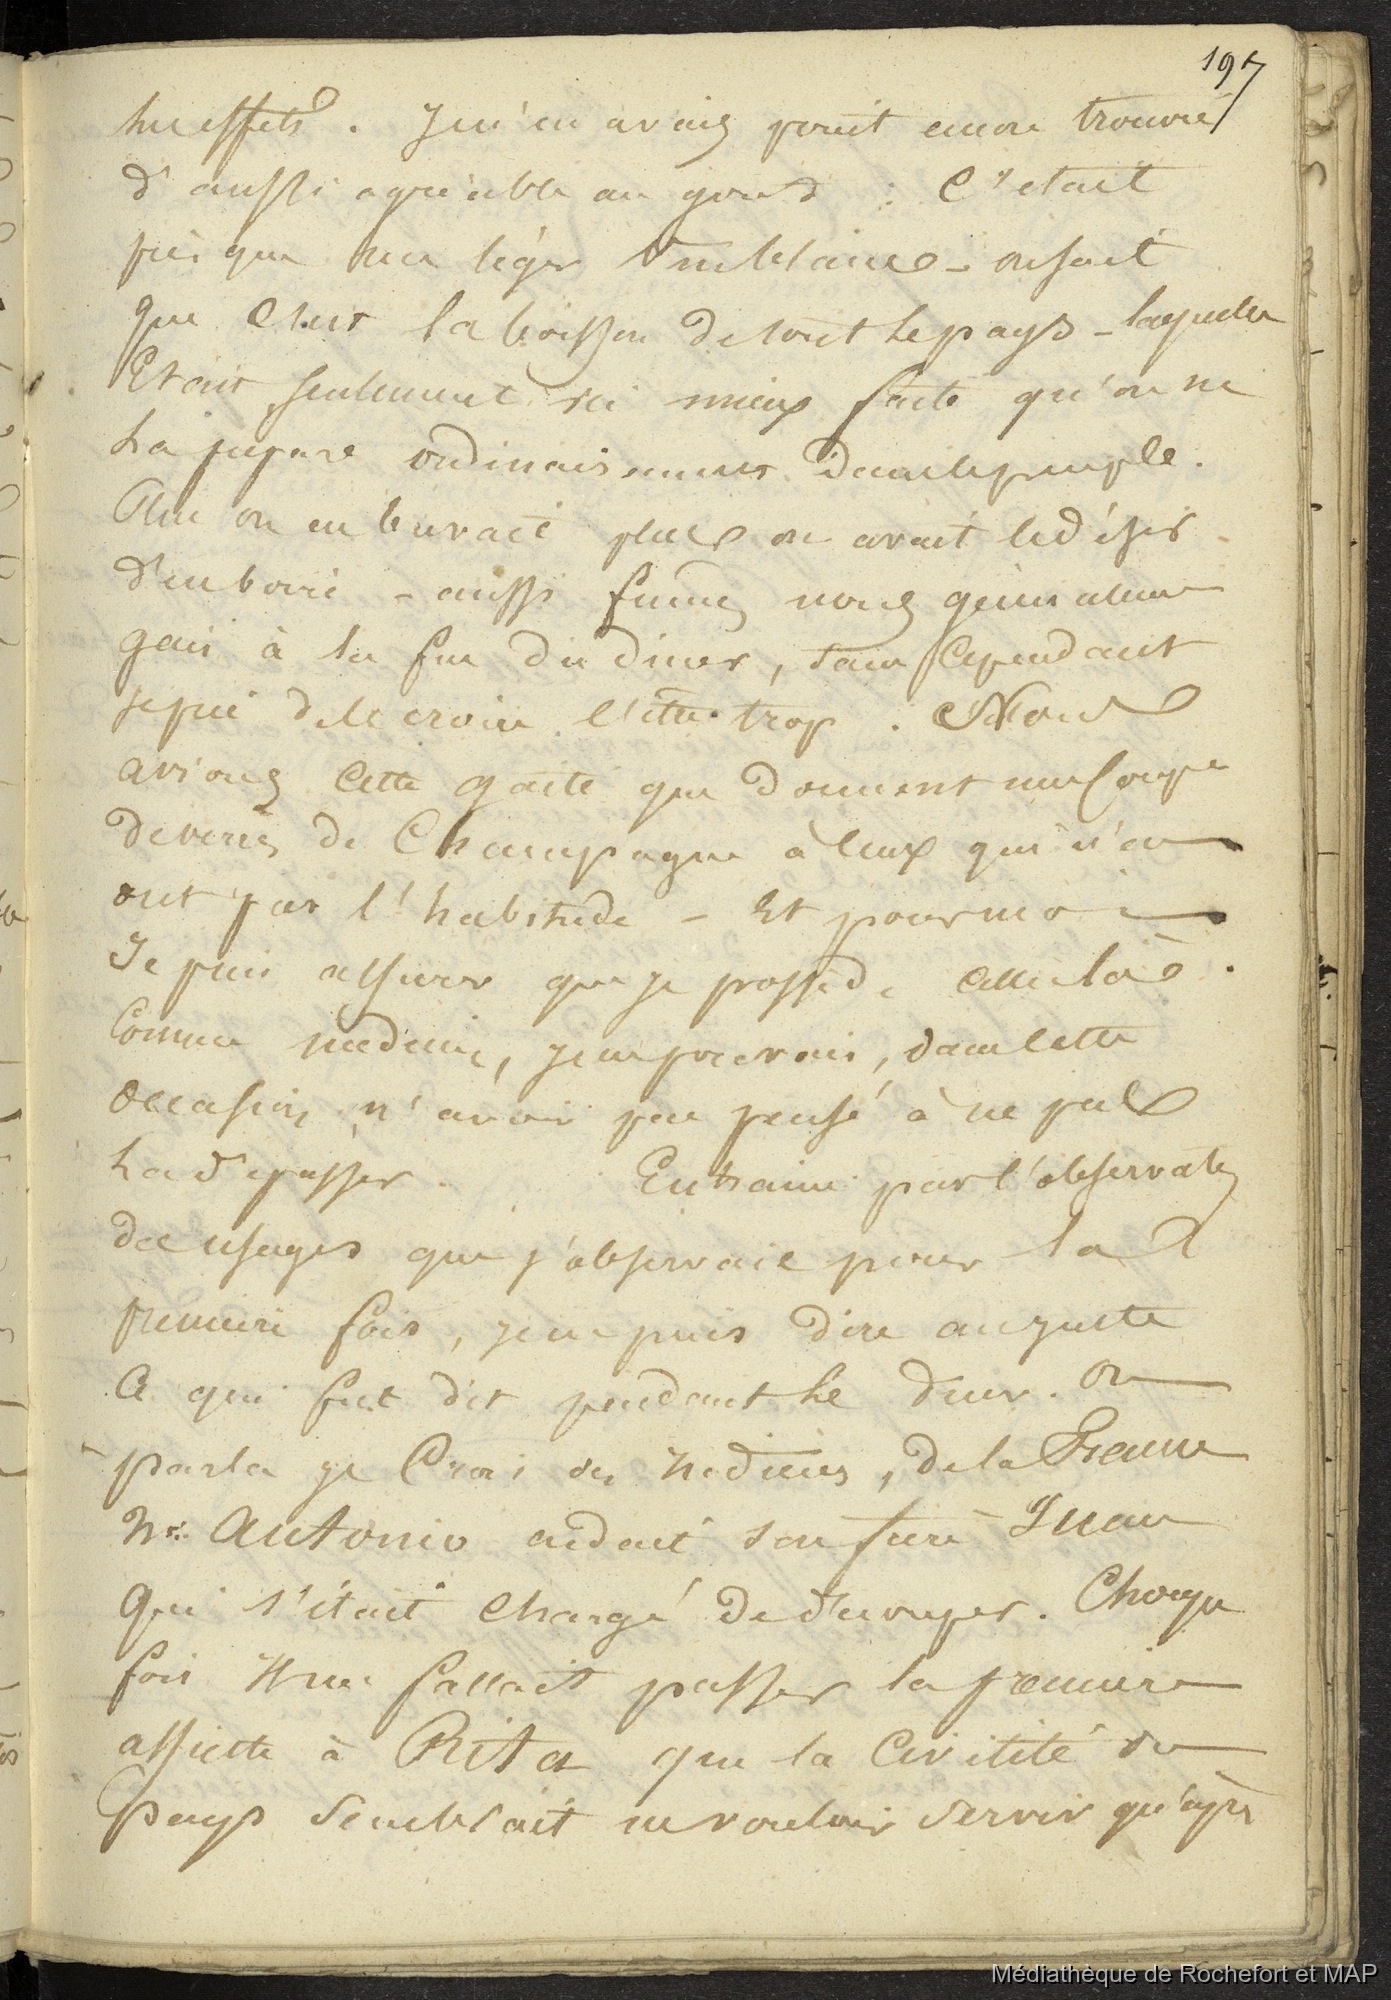 197
ses effets. Je n'en avais point encore trouvé
d'aussi agréable au goud : C'etait
presque une léger vin blanc - on sait
que C'est la boisson de tout le pays - laquelle
Etait seulement ici mieux faite qu'on ne
la prepare ordinairement dans le peuple.
Plus on en buvait plus on avait le désir
d'en boire - aussi fumes nous généralement
gais à la fin du diner, sans Cependant
je puis de le croire l'être trop. Nous
avions Cette gaité que donnent une Coupe
de verres de Champagne à Ceux qui n'en
ont pas l'habitude - Et pour moi
Je puis assurer que je possédé celle là.
Comme medecin, je ne pouvais, dans Cette
occasion n'avoir pas pensé à ne pas
la dépasser. Entrainé par l'observation
des usages que j'observais pour la
premiere fois, je ne puis dire au juste
Ce qui fut dit pendant le diner. On
parla je Crois des medecins, de la France
Mr. Antonio aidait son frere Juan
qui s'était Chargé de decouper. Chaque
fois il me fallait passer la premiere
assiette à Rita que la Civilité du
pays semblait ne vouloir servir qu'après
Médiathèque de Rochefort et MAP